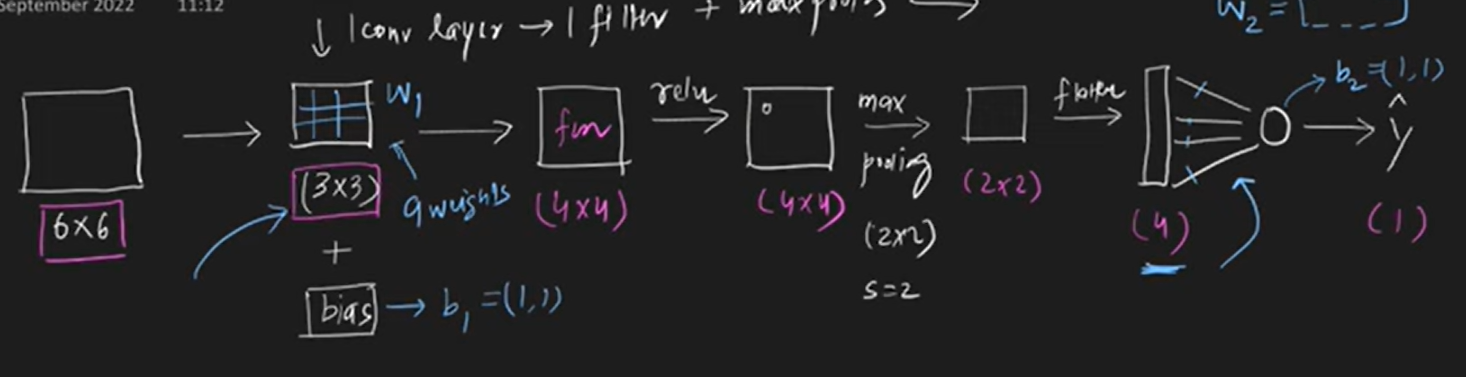 September 2022 11:12
↓ 1 conv layer → 1 filter + max pooling →
W₂ = [----]
6x6
W₁
(3x3)
9 weights
+
bias → b₁ = (1,1)
fm
(4x4)
relu
(4x4)
max
pooling
(2x2)
s=2
(2x2)
flatten
(4)
b₂ = (1,1)
ŷ
(1)